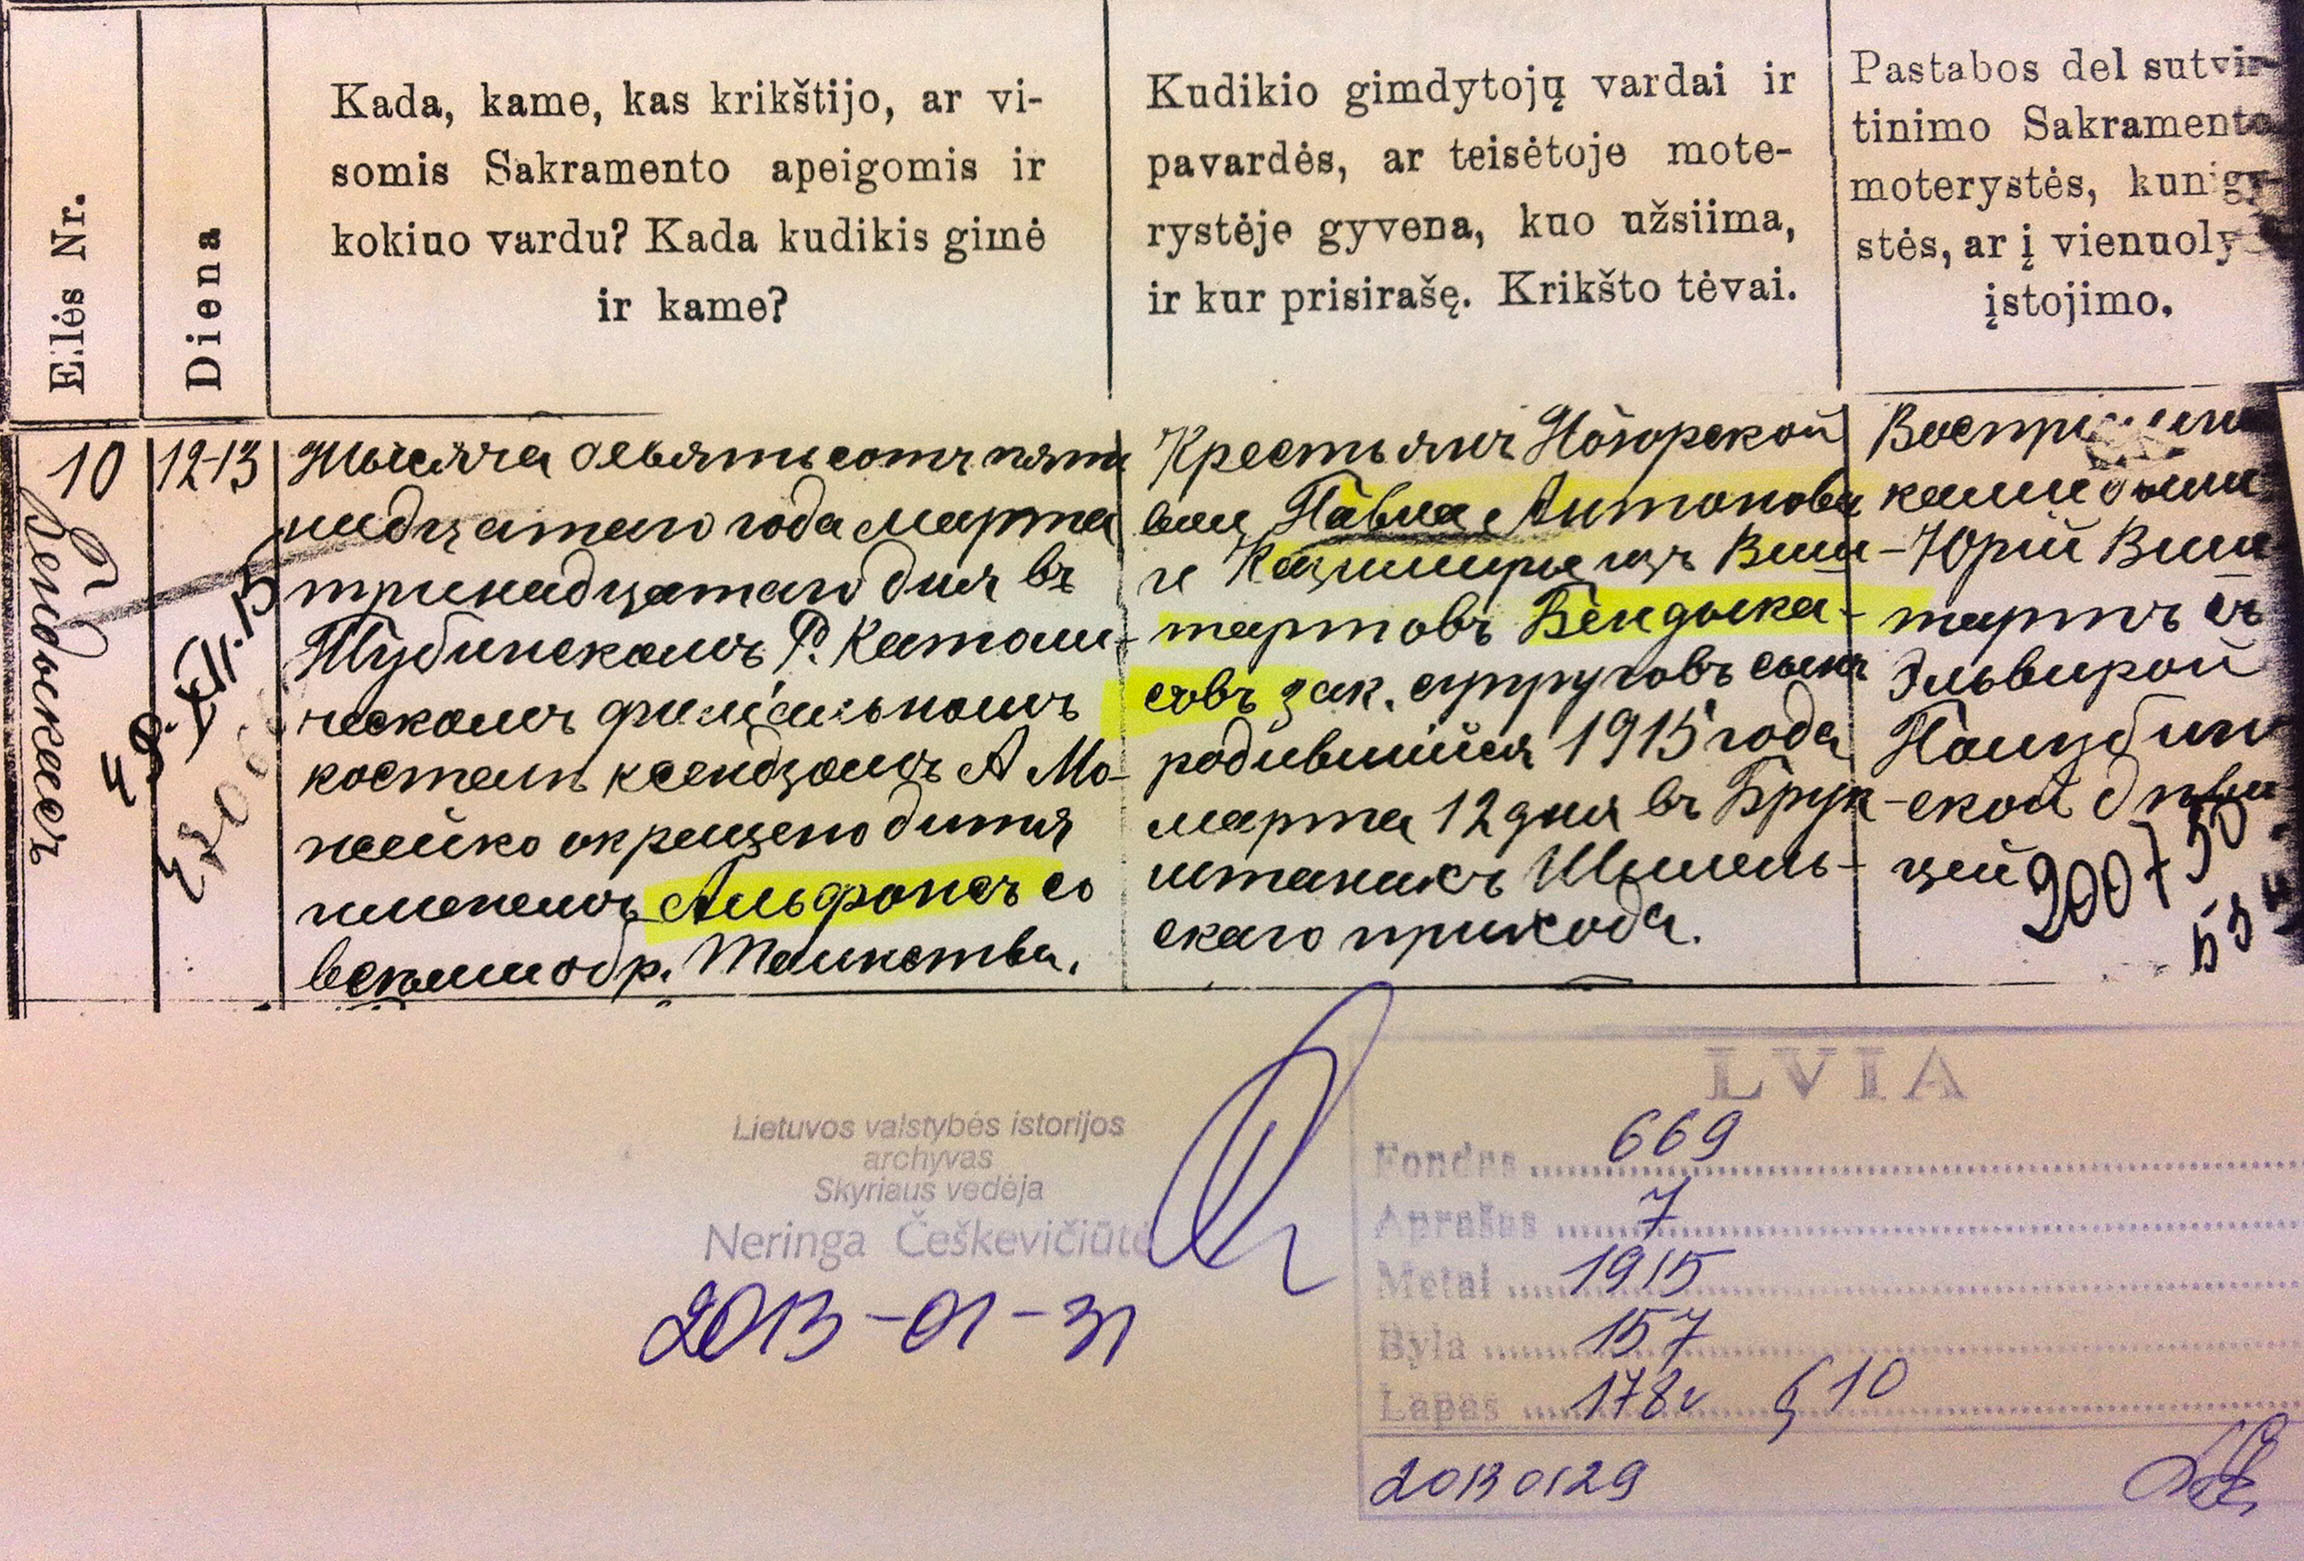 Eilės Nr.
Diena
Kada, kame, kas krikštijo, ar vi-
somis Sakramento apeigomis ir
kokiuo vardu? Kada kudikis gimė
ir kame?
Kudikio gimdytojų vardai ir
pavardės, ar teisėtoje mote-
rystėje gyvena, kuo užsiima,
ir kur prisirašę. Krikšto tėvai.
Pastabos del sutvir-
tinimo Sakramento
moterystės, kunigy-
stės, ar į vienuoly
įstojimo.
10
Бендыкасъ
12-13
Тысяча девятьсотъ пят
надцатаго года марта
тринадцатаго дня въ
Тубинскомъ Р. Католи-
ческомъ филіальномъ
костелѣ ксендзомъ А Мо-
нейко окрещено дитя
именемъ Альфонсъ со
всѣми обр. Таинства.
Крестьянъ
вол. Павла Антонова
и Казимиры изъ Вит-
мартовъ Бендыка-
совъ зак. супруговъ сынъ
родившійся 1915 года
марта 12 дня въ Брук
штаникъ
скаго прихода.
Воспр
ками были
-Юрій Вит
мартъ съ
Эльвирой
-ской дѣви
цей
Lietuvos valstybės istorijos
archyvas
Skyriaus vedėja
Neringa Češkevičiūtė
2013-01-31
LVIA
Fondas 669
Aprašas 7
Metai 1915
Byla 157
Lapas 178v 10
20130129